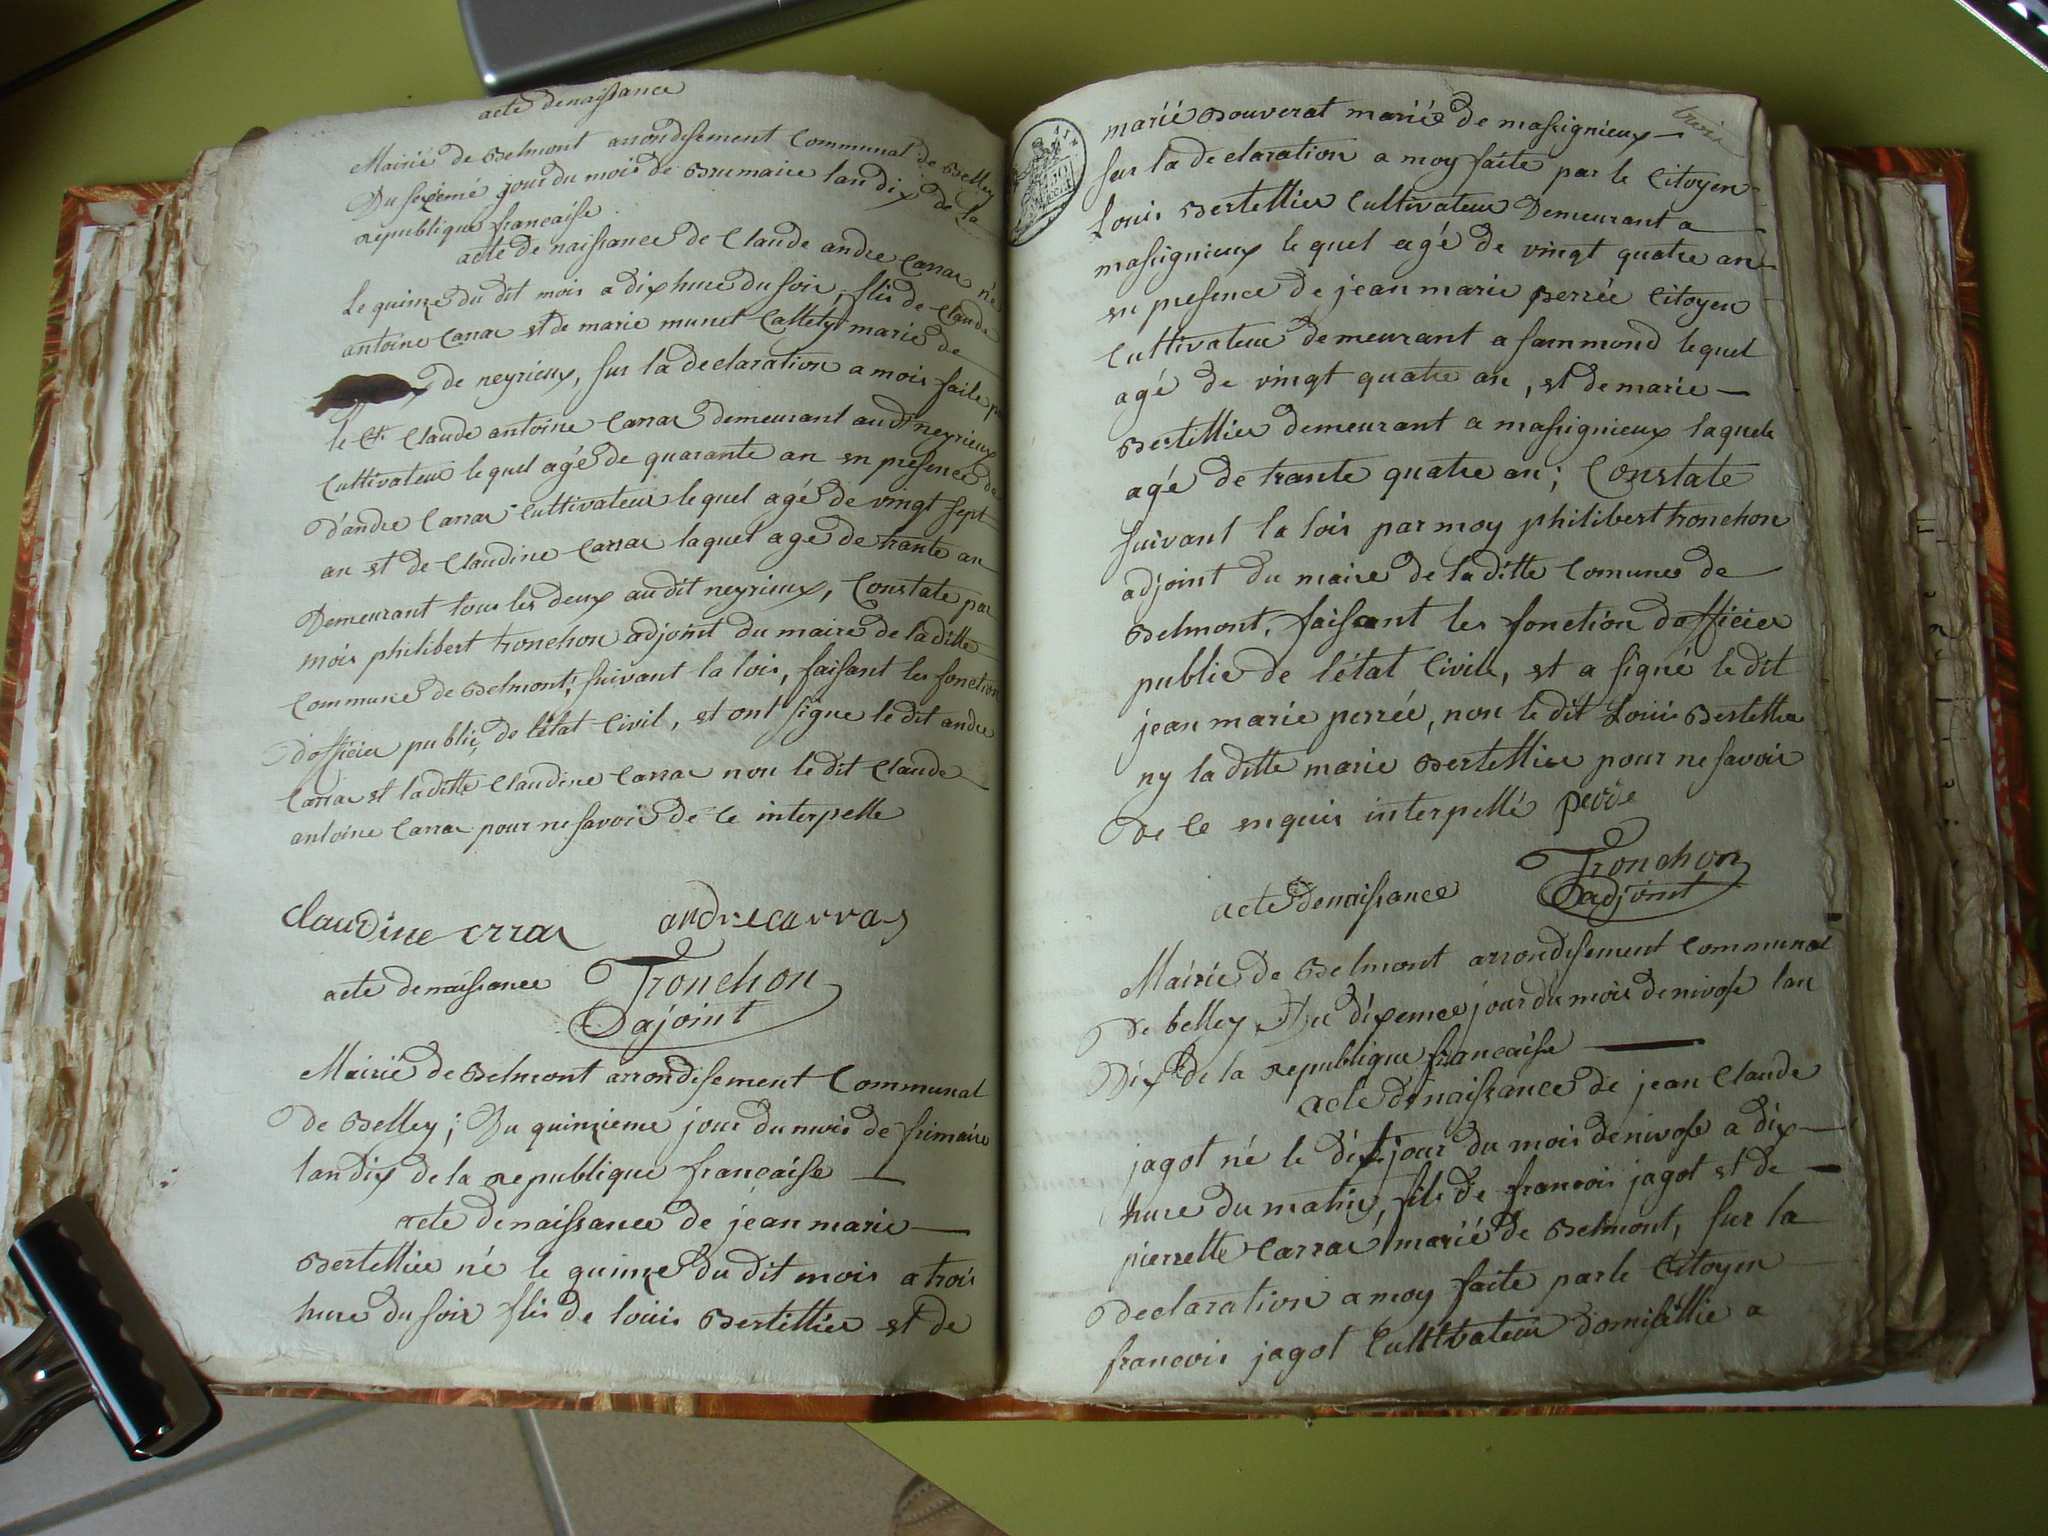 acte denaissance
Mairié de Belmont arrondisement Communal de Belley
Du sexemé jour du mois de Brumaire lan dix de la
republique francaise
acte de naissance de Claude andre Carrac né
Le quinze du dit mois a dix hure du soir, flis de Claude
antoine Carrac et de marie munet Callety marié de
de neyrieux, sur la declaration a mois faite par
le Ct. Claude antoine Carrac demeurant au dt neyrieux
Cultivateur le quel agé de quarante an en presence de
D'andre Carrac Cultivateur le quel agé de vingt sept
an et de Claudine Carrac laquel agé de trante an
Demeurant tous les deux au dit neyrieux, Constate par
mois philibert tronchon adjoint du maire de la ditte
Commune de Belmont, suivant la lois, faisant les fonction
d'officier public, de l'état Civil, et ont signe le dit andre
Carrac et la ditte Claudine Carrac non le dit Claude
antoine Carrac pour ne savoir de ce interpelle
claudine crrac andrecarras
acte denaissance Tronchon
ajoint
Mairié de Belmont arrondisement Communal
De Belley; Du quinzieme jour du mois de frimaire
lan dix de la republique francaise
acte denaissance de jean marie
Bertellier né le quinze du dit mois a trois
hure du soir flis de louis Bertellier et de
trois
marié Bouverat marié de massignieux
sur la declaration a moy faite par le Citoyen
Louis Bertellier Cultivateur Demeurant a
massignieux le quel agé de vingt quatre an
en presence de jean marie perrée Citoyen
Cultivateur demeurant a sammond lequel
agé de vingt quatre an, et de marie
Bertellier demeurant a massignieux laquele
agé de trante quatre an; Constate
suivant la lois par moy philibert tronchon
adjoint du maire de la ditte Comune de
Belmont, faisant les fonction dofficier
public de l'état Civile, et a signé le dit
jean marie perrée, non le dit Louis Bertellier
ny la ditte marie Bertellier pour ne savoir
De ce enquis interpellé perré
Tronchon
acte denaissance adjoint
Mairié de Belmont arrondisement Communal
De belley, Du dixemee jour du mois denivose lan
Dix de la republique francaise
acte denaissance de jean Claude
jagot né le dix jour du mois denivose a dix
hure du matin, fils de francois jagot et de
pierrette Carrac marié de Belmont, sur la
Declaration a moy faite par le Citoyen
francois jagot Cultivateur domisillie a